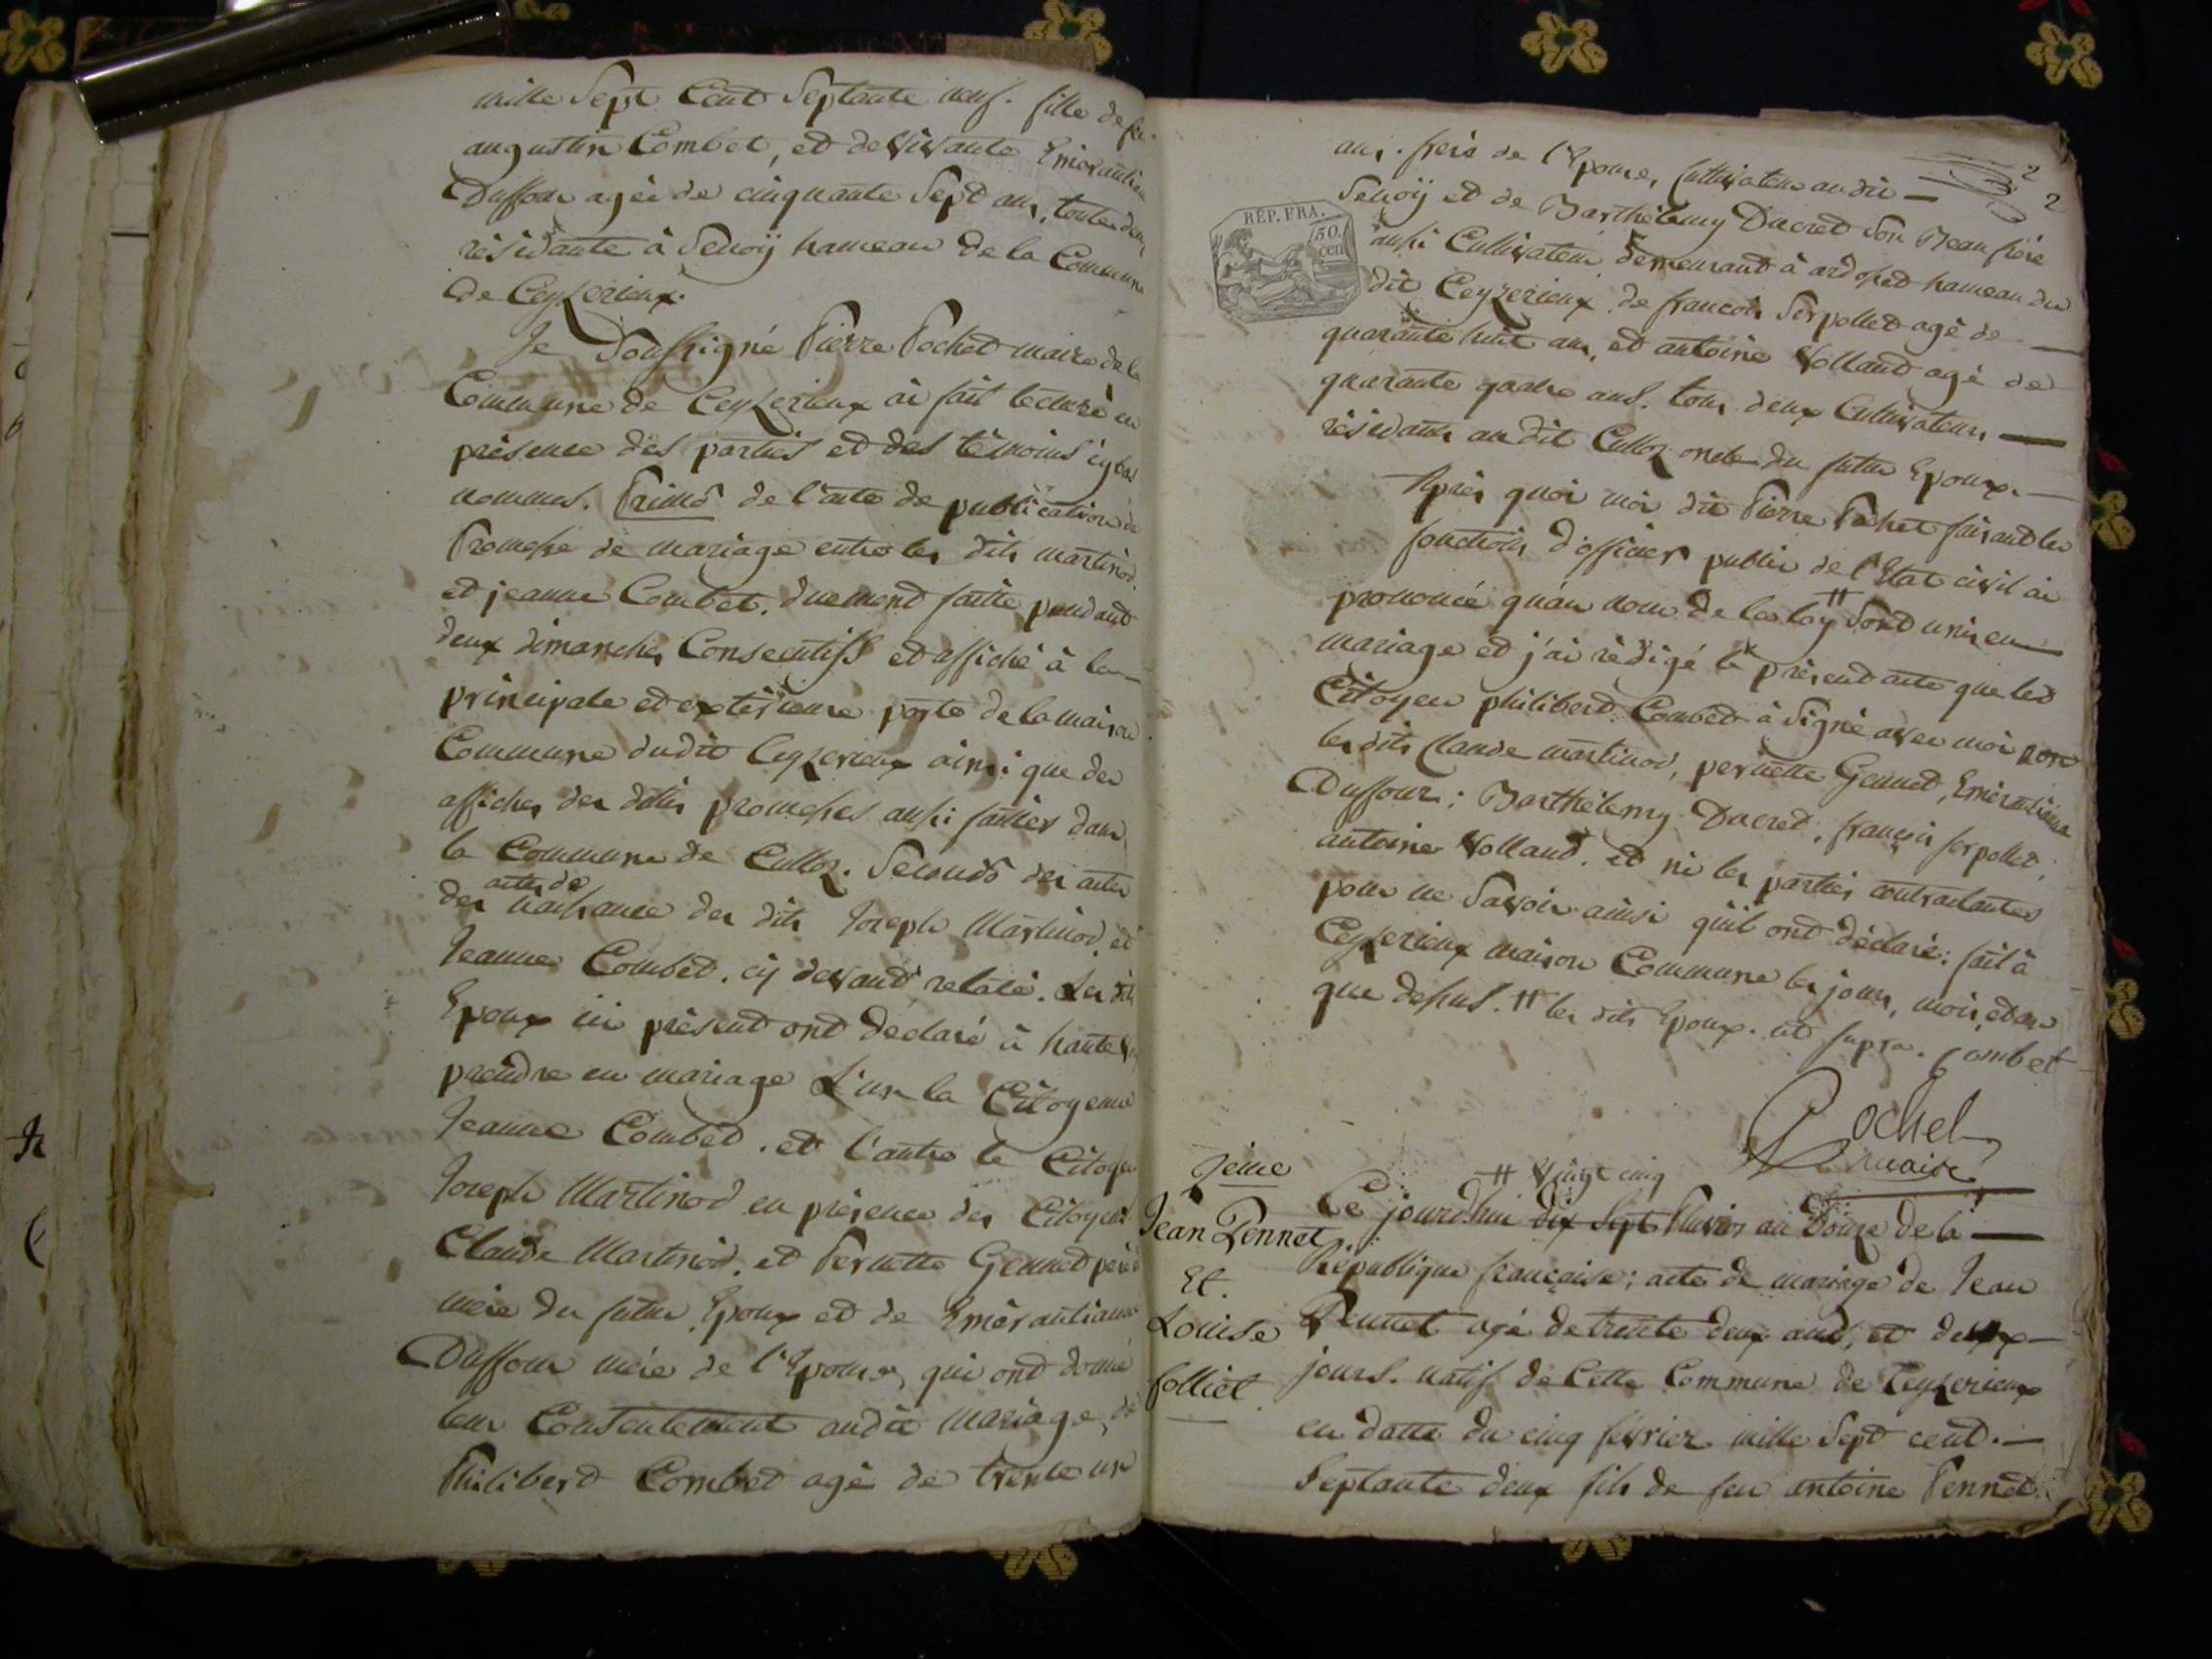 mille Sept Cent Septante neuf. fille de feu
augustin Combet, et de Vivante Emerantiane
Duffour agée de cinquante Sept ans, toute deux
résidante à Senoÿ hameau de la Commune
de Ceyzerieux.
Je Soussigné Pierre Pochet maire de la
Commune de Ceyzerieux ai fait lecture en
présence des parties et des témoins cy bas
nommés. Primo de l'acte de publication de
Promesse de mariage entre les dits martinod.
et jeanne Combet. duement faitte pendant
deux dimanches Consecutifs et affiché à la
principale et extérieure porte de la maison
Commune dudit Ceyzerieux ainsi que des
affiches des dittes promesses aussi faittes dans
la Commune de Culloz. Secundo des actes
actes de
des naissance des dits Joseph Martinod et
Jeanne Combet. cy devant relaté. Les dits
Epoux ici présent ont déclaré à haute
prendre en mariage L'un la Citoyenne
Jeanne Combet. et l'autre le Citoyen
Joseph Martinod en présence des Citoyens
Claude Martinod. et Pernette Gennet père
mère du futur Epoux et de Emérantiane
Duffour mère de l'Epouse, qui ont donné
leur Consentement audit mariage, de
Philibert Combet agé de trente un
2
2
ans. frère de l'Epouse, Cultivateur audit
Senoÿ et de Barthélemy Ducret son Beau frère
RÉP. FRA.
50.
cen
aussi Cultivateur demeurant à ardosset hameau du
dit Ceyzerieux. de francois Serpollet agé de
quarante huit ans, et antoine Volland agé de
quarante quatre ans. tous deux Cultivateurs
résidants au dit Culloz oncle du futur Epoux.
Après quoi moi dit Pierre Pochet faisant les
fonctions d'officier public de l'Etat civil ai
prononcé qu'au nom de la loy # sont unis en
mariage et j'ai rédigé le présent acte que led
Citoyen philibert Combet à Signé avec moi non
les dits Claude martinod, pernette Gennet, Emérantiane
Duffour; Barthélemy Ducret, françois serpollet,
antoine Volland. et ni les parties contractantes
pour ne Savoir ainsi qu'il ont déclaré; fait à
Ceyzerieux maison Commune les jours, mois, et an
que dessus. # les dits Epoux. ut supra. Combet
Pochet
maire
2eme
Jean Pennet
Et.
Louise
folliet.
# Vingt cinq
Ce jourd'hui dix Sept Pluvios an Douze de la
République française; acte de mariage de Jean
Pennet agé de trente deux ans, et deux
jours. natif de Cette Commune de Ceyzerieux
en datte du cinq février mille Sept cent.
Septante deux fils de feu antoine Pennet.